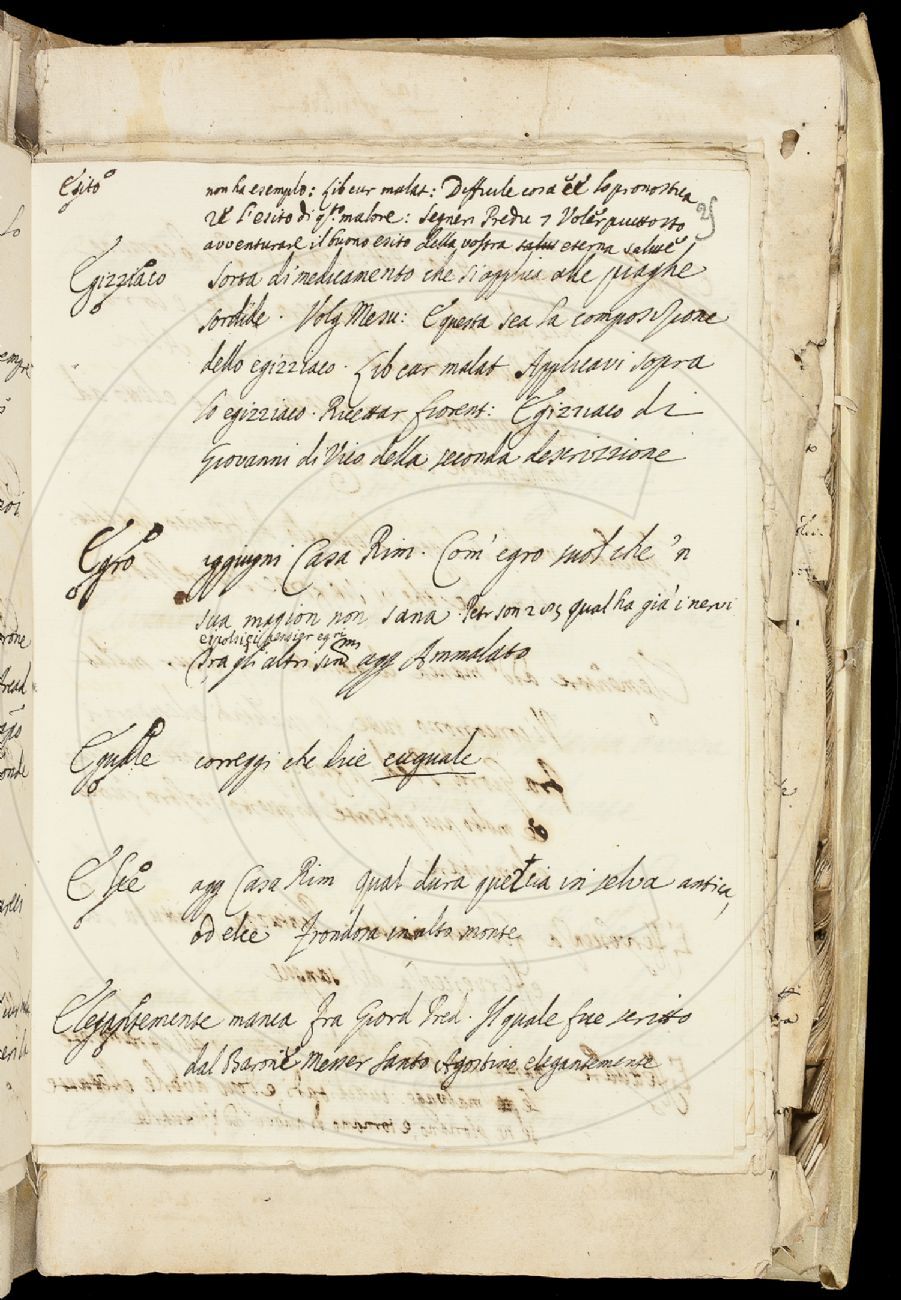 Esito non ha esemplo: Lib cur malat: Difficile cosa è lo pronostica
re l'esito di qto malore: Segneri Pred 7 Voler piuttosto
avventurare il buono esito della vostra salus eterna salute
25
Egizziaco sorta di medicamento che si applica alle piaghe
sordide. Volg Mesu: E questa sea la composizione
dello egizziaco. Lib cur malat Applicavi sopra
lo egizziaco. Ricettar fiorent: Egizziaco di
Giovanni di Vico della seconda descrizzione
Egro aggiugni Casa Rim. Com' egro suol che 'n
sua magion non sana. Petr son qual ha già i nervi
e i polsi e i pensier egri
Fra gli altri sinmi agg Ammalato
Eguale correggi che dice euguale
Elce agg Casa Rim qual dura quercia in selva antica,
od elce frondosa in alto monte
Elegantemente manca Fra Giord Pred. Il quale fue scritto
dal Barone Messer Santo Agostino elegantemente